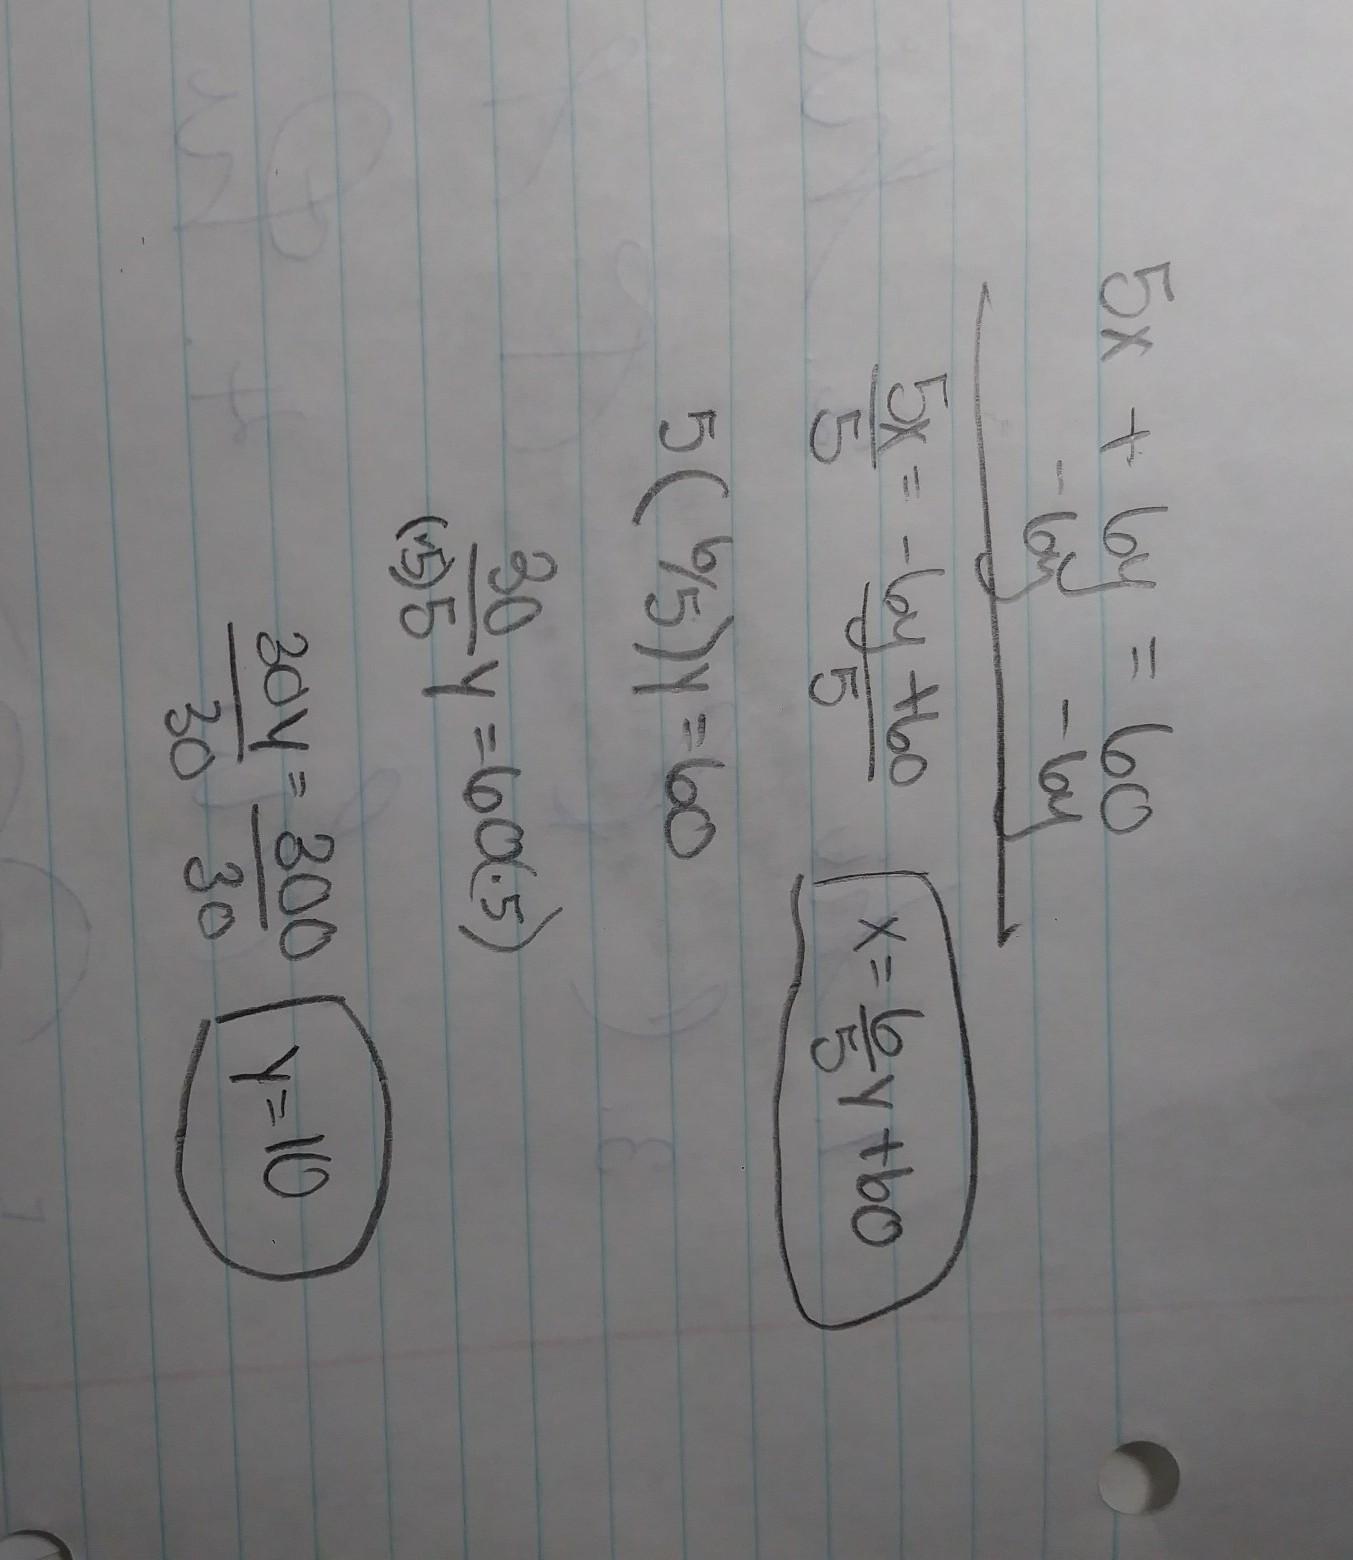 5x + 6y = 60
-6y -6y
5x = -6y + 60
5 5
x = 6/5 y + 60
5(6/5)y = 60
30/(·5)5 y = 60(·5)
30y = 300
30 30
y = 10